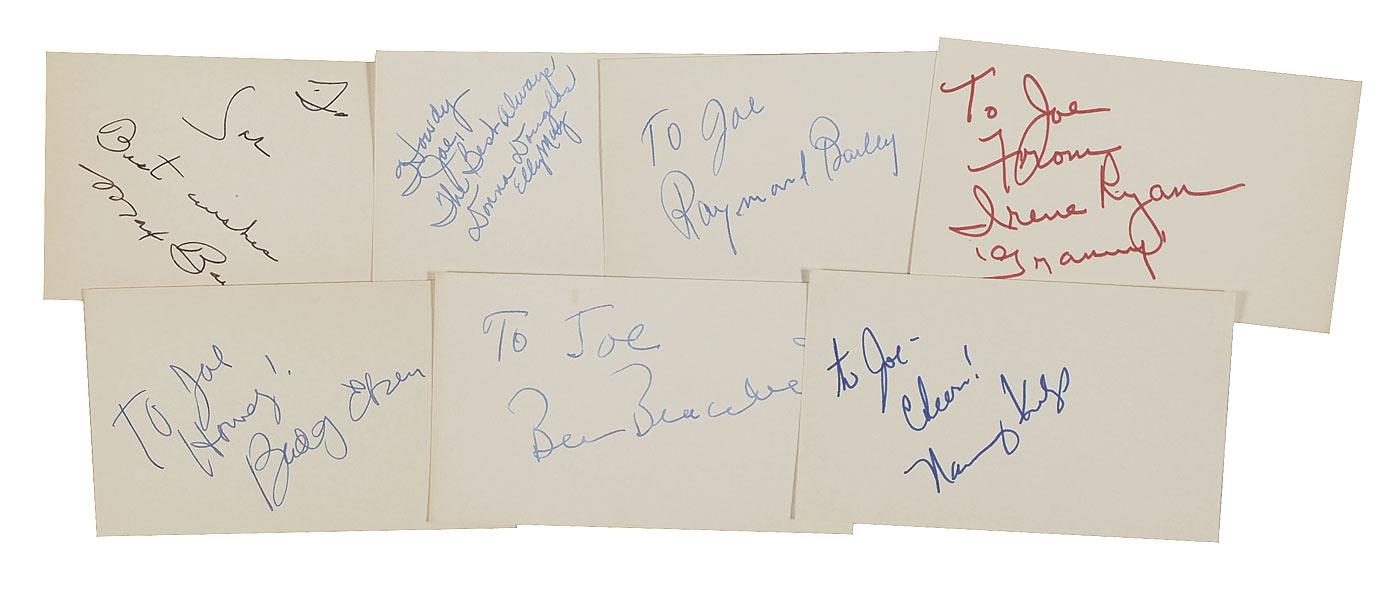 To
Joe
Best wishes
Max Bae
Howdy
Joe,
The Best Always
Donna Douglas
Elly May
To Joe
Raymond Bailey
To Joe
From
Irene Ryan
'Granny'
To Joe
Howdy!
Buddy Ebsen
To Joe
Bea Benadere
to Joe-
Cheers!
Nancy Kulp